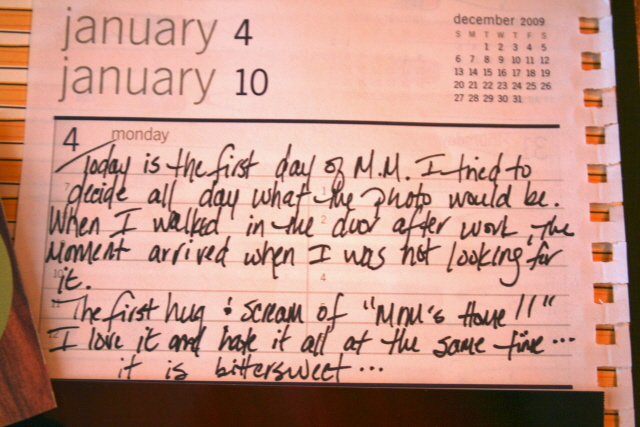 january 4
january 10
december 2009
S M T W T F S
1 2 3 4 5
6 7 8 9 10 11 12
13 14 15 16 17 18 19
20 21 22 23 24 25 26
27 28 29 30 31
4 monday
Today is the first day of M.M. I tried to
decide all day what the photo would be.
When I walked in the door after work, the
moment arrived when I was not looking for
it.
The first hug & scream of "Mom's Home!!"
I love it and hate it all at the same time...
it is bittersweet...